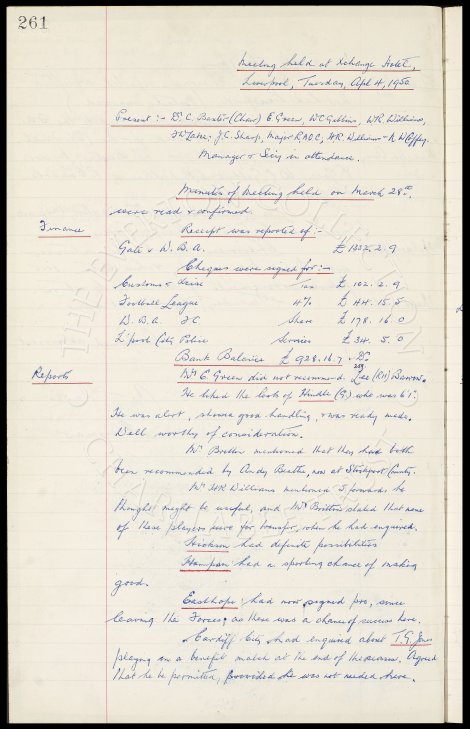 261
Meeting held at Xchange Hotel,
Liverpool, Tuesday, Apl 4, 1950
Present :- Dr C. Baxter (Chair) E Green, W C Gibbins, W.R. Williams,
J.C. Sharp, Major R.A.D.C, H.R. Williams + N W Coffey.
Manager + Secy in attendance.
Minutes of Meeting held on March 28th,
were read + confirmed.
Finance
Receipt was reported of :-
Gate v W. B. A. £ 1332. 2. 9
Cheques were signed for :-
Customs + Excise Tax £ 102. 2. 9
Football League 4% £ 44. 15. 5
W. B. A FC Share £ 178. 16. 0
L'pool City Police Services £ 34. 5. 0
Bank Balance £ 928. 16. 7 Dr
Reports
Mr E. Green did not recommend Lee (RH) Barrow.
He liked the look of Hindle (G.) who was 6'1".
He was alert, shown good handling, + was ready made.
Well worthy of consideration.
Mr Britton mentioned that they had both
been recommended by Andy Beattie, now at Stockport County.
Mr H.R. Williams mentioned 3 forwards he
thought might be useful, and Mr Britton stated that none
of these players were for transfer, when he had enquired.
had definite possibilities
Hampson had a sporting chance of making
good.
Easthope: had now signed pro, since
leaving the Forces, as there was a chance of success here.
Cardiff City had enquired about T.G. Jones
playing in a benefit match at the end of the season. Agreed
that he be permitted, provided he was not needed here.
THE EVERTON COLLECTION